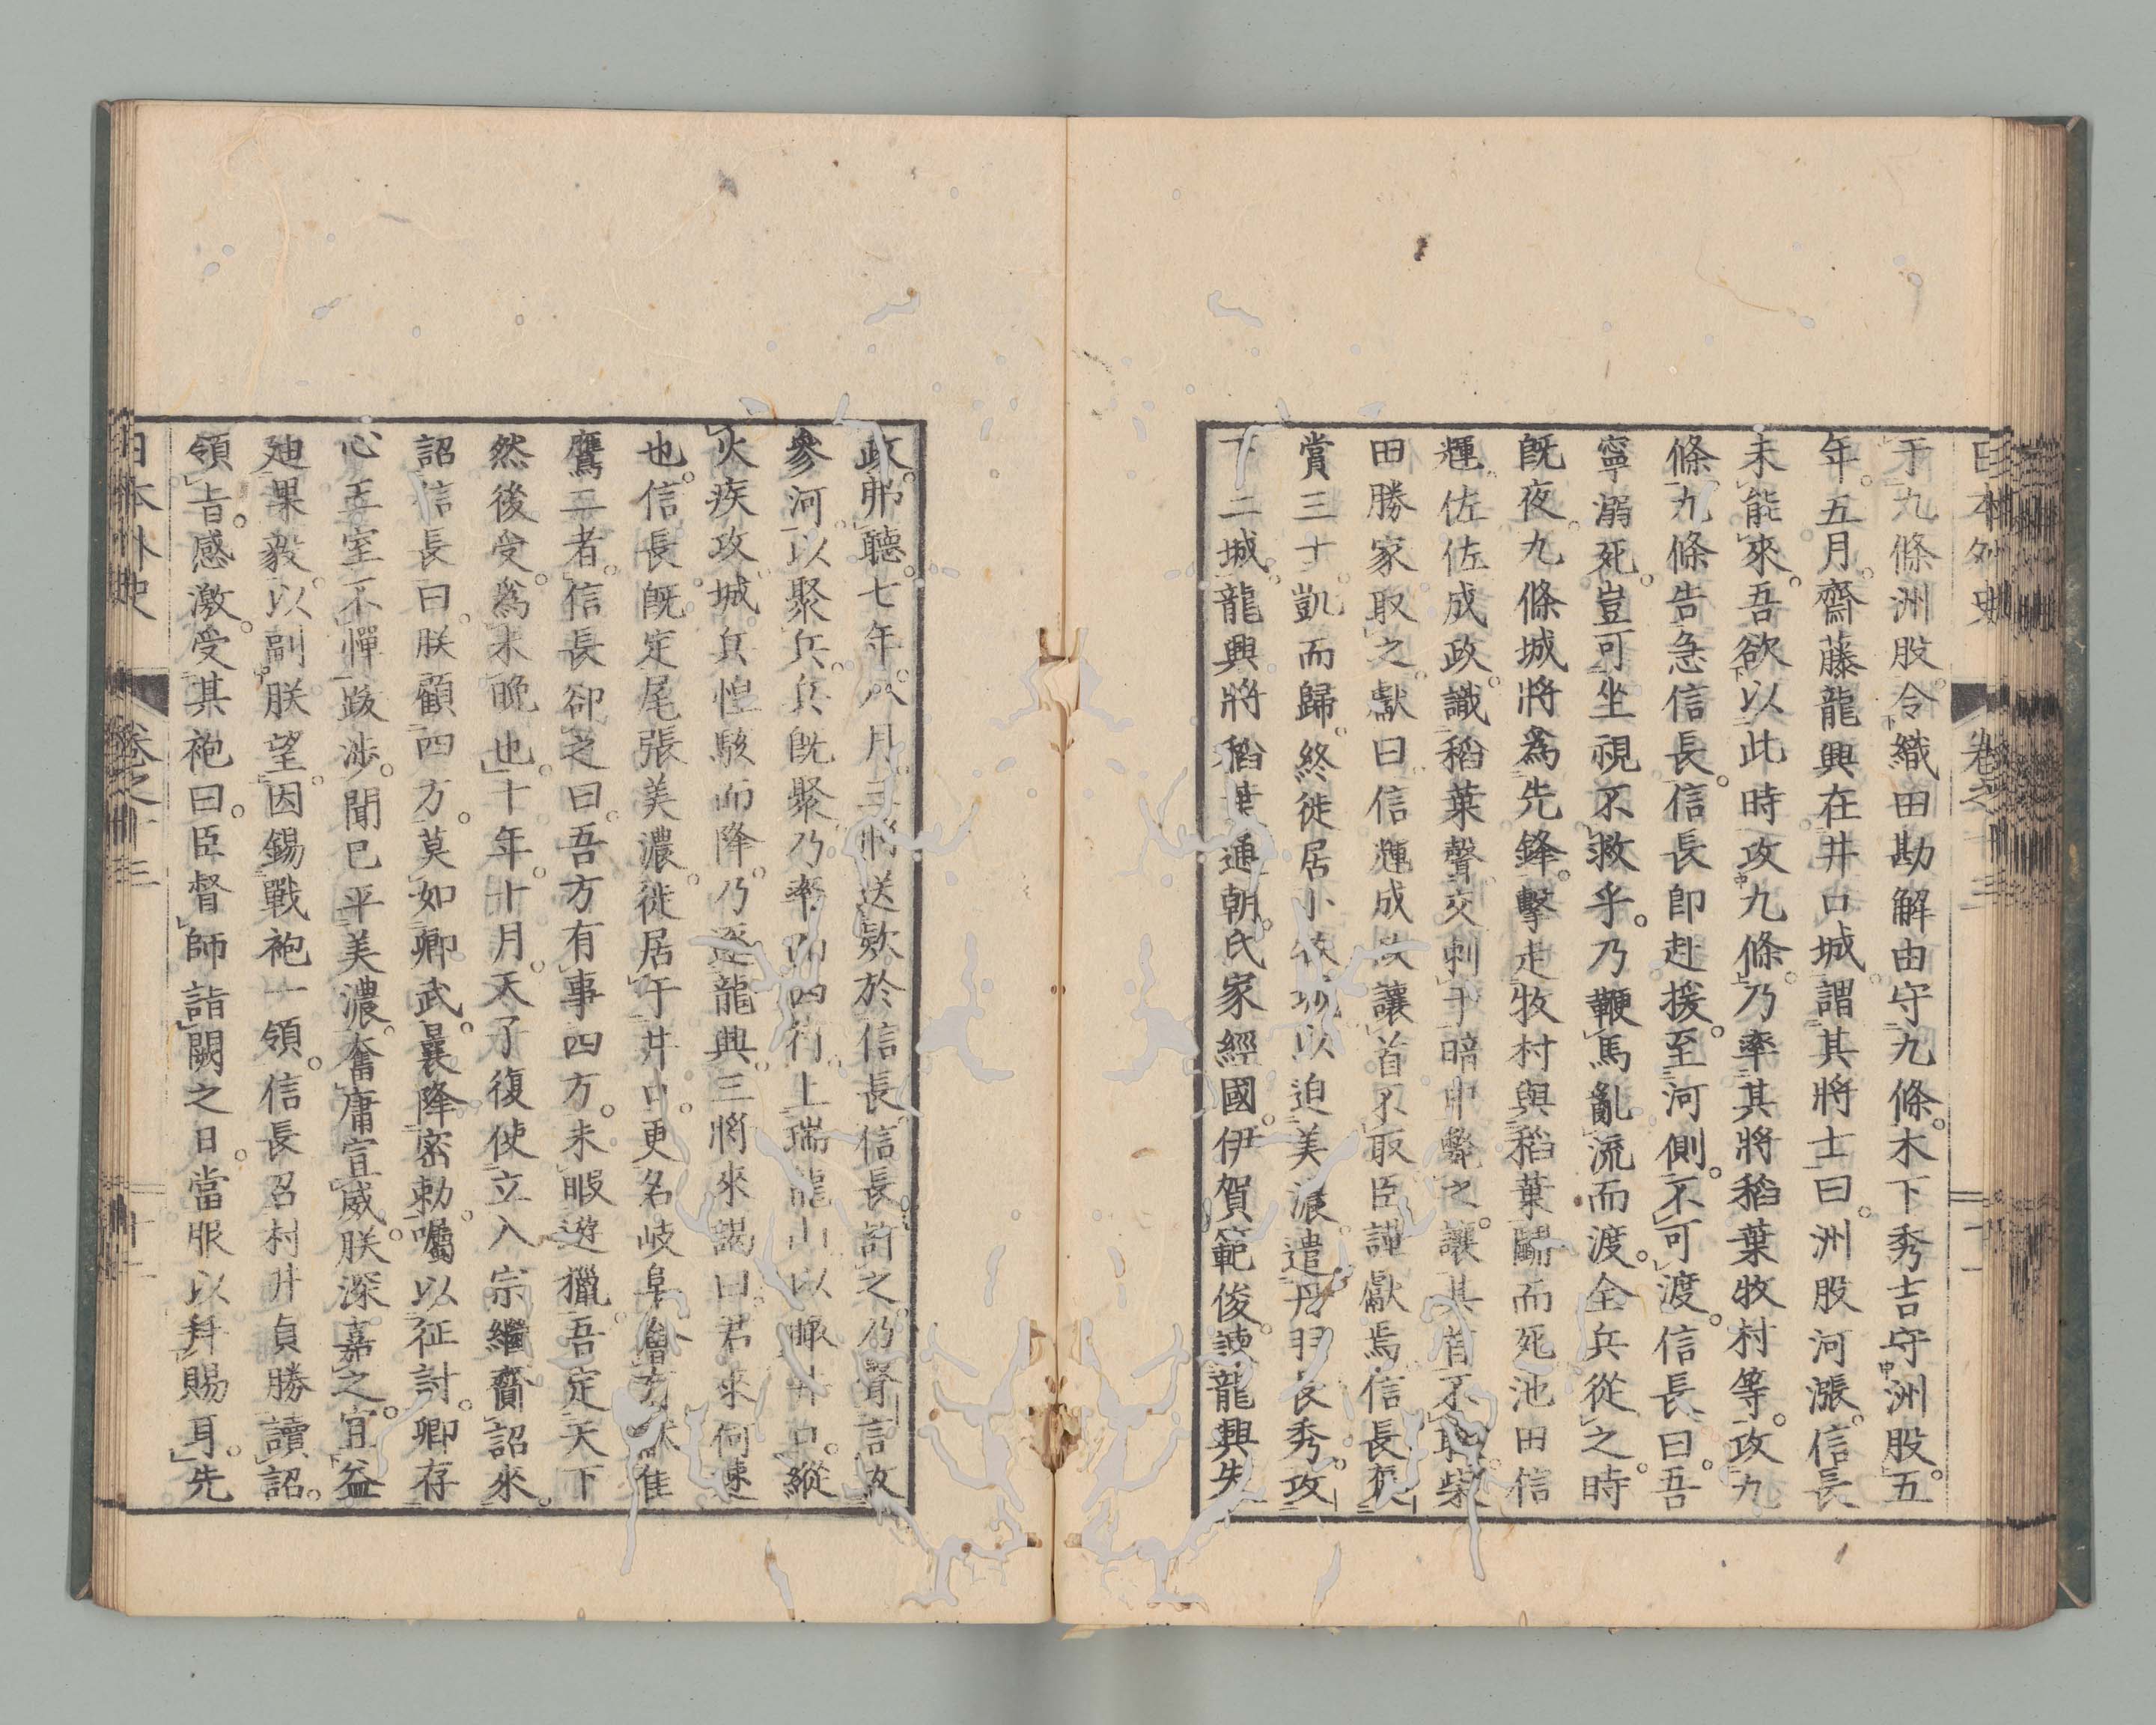 日本外史 卷之十三
于九條洲股。令織田勘解由守九條。木下秀吉守洲股。五
年。五月。齋藤龍興在井口城。謂其將士曰。洲股河漲。信長
未能來。吾欲以此時攻九條。乃率其將稻葉牧村等。攻九
條。九條告急信長。信長即赴援。至河側。不可渡。信長曰。吾
寧溺死。豈可坐視不救乎。乃鞭馬亂流而渡。全兵從之。時
既夜。九條城將為先鋒。擊走牧村與稻葉鬪而死池田信
輝。佐佐成政。識稻葉聲。交刺于暗中斃之。讓其首不取。柴
田勝家取之。獻曰。信輝成政讓首不取。臣謹獻焉。信長
賞三士。凱而歸。終徙居小牧城以迫美濃。遣丹羽長秀。攻
下二城。龍興將稻葉通朝。氏家經國。伊賀範俊。諫龍興失
政。弗聽。七年。八月。三將送欵於信長。信長許之。乃聲言攻
參河。以聚兵。兵既聚。乃率而西行。上瑞龍山以瞰井口。縱
火疾攻城。城兵惶駭而降。乃逐龍興。三將來謁曰。君來何速
也。信長既定尾張美濃。徙居于井口。更名岐阜。
鷹三者。信長卻之曰。吾方有事四方。未暇遊獵。吾定天下
然後受。為未晚也。十年。十月。天子復使立入宗繼齎詔來。
詔信長曰。朕顧四方。莫如卿武。曩降密勅。囑以征討。卿存
心王室。不憚跋涉。聞已平美濃。奮庸宣威。朕深嘉之。宜益
廸果毅。以副朕望。因錫戰袍一領。信長召村井貞勝讀詔。
領旨。感激。受其袍曰。臣督師詣闕之日。當服以拜賜耳。先
日本外史 卷之十三